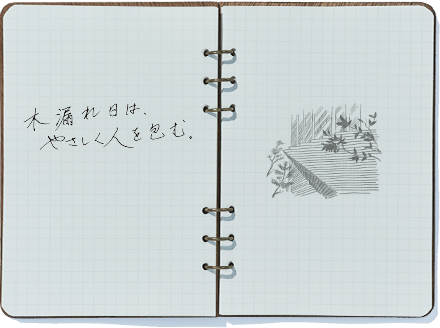 木漏れ日は、
やさしく人を包む。